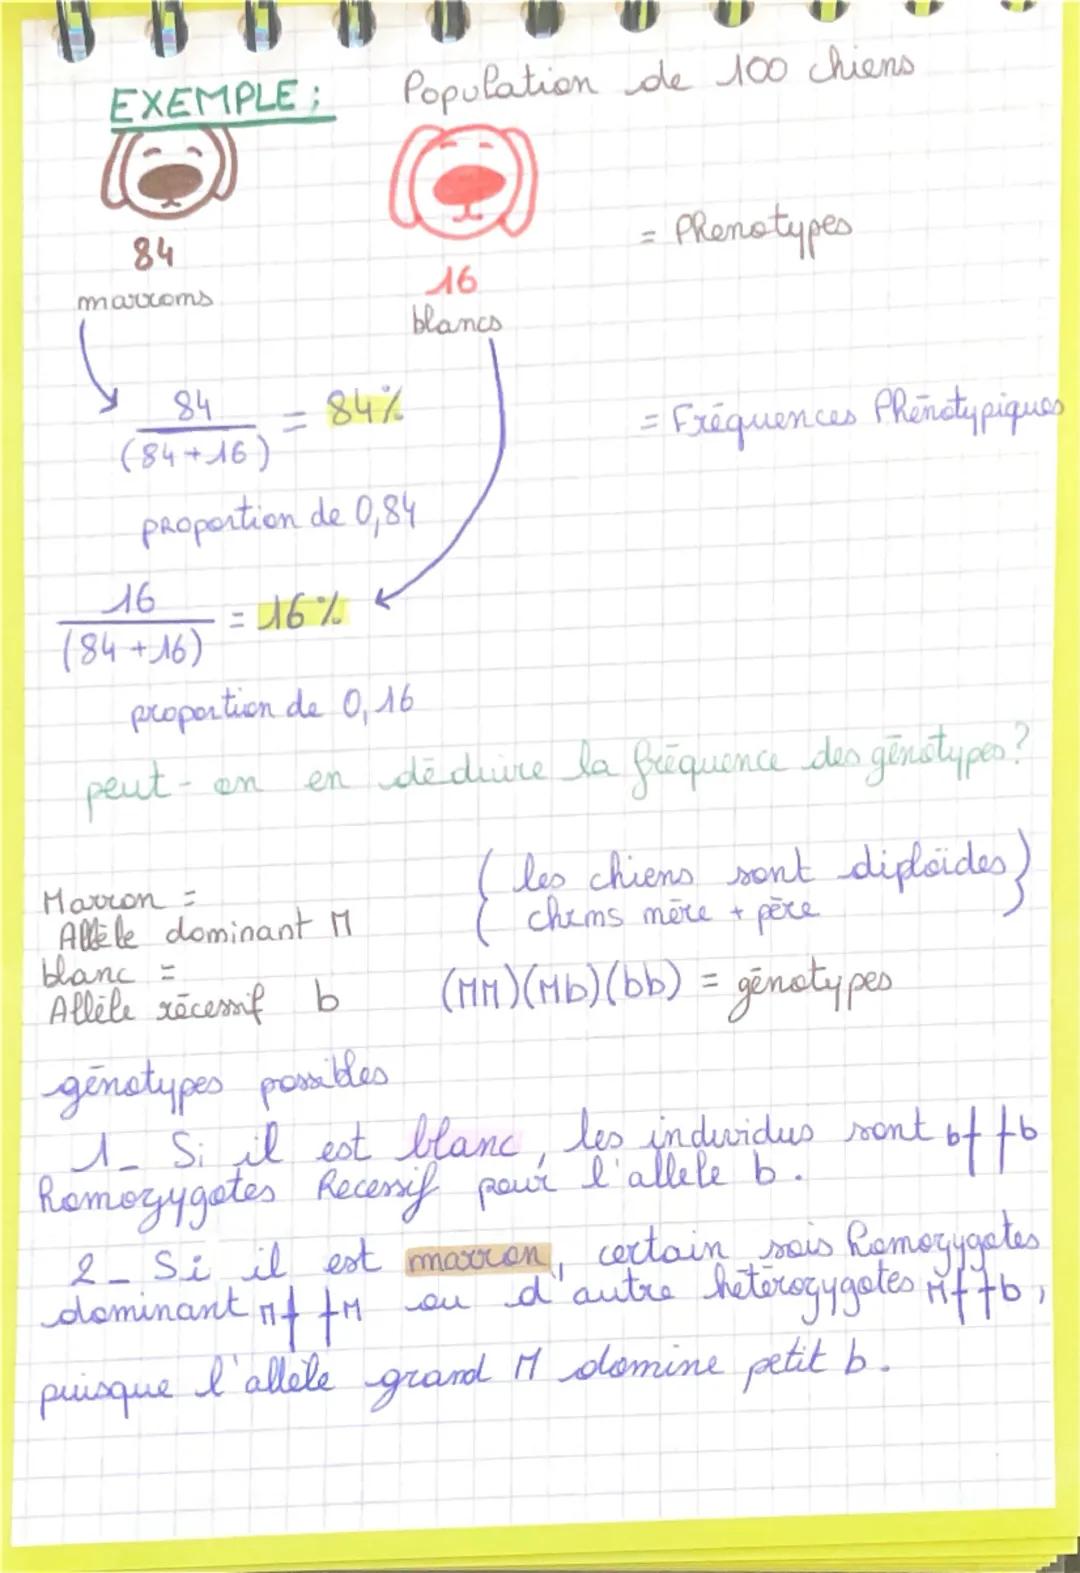 EXEMPLE : Population de 100 chiens
84 16 = Phenotypes
marrons blancs
84 / (84+16) = 84% = Fréquences Phénotypiques
proportion de 0,84
16 / (84+16) = 16%
proportion de 0,16
peut-on en déduire la fréquence des génotypes?
Marron = (les chiens sont diploïdes)
Allèle dominant M chrms mère + père
blanc =
Allèle récessif b (MM)(Mb)(bb) = génotypes
génotypes possibles
1_ Si il est blanc, les individus sont b++b
Homozygotes Récessif pour l'allele b.
2_ Si il est marron, certain sois homozygotes
dominant M++M ou d'autre hétérozygotes M++b,
puisque l'allèle grand M domine petit b.